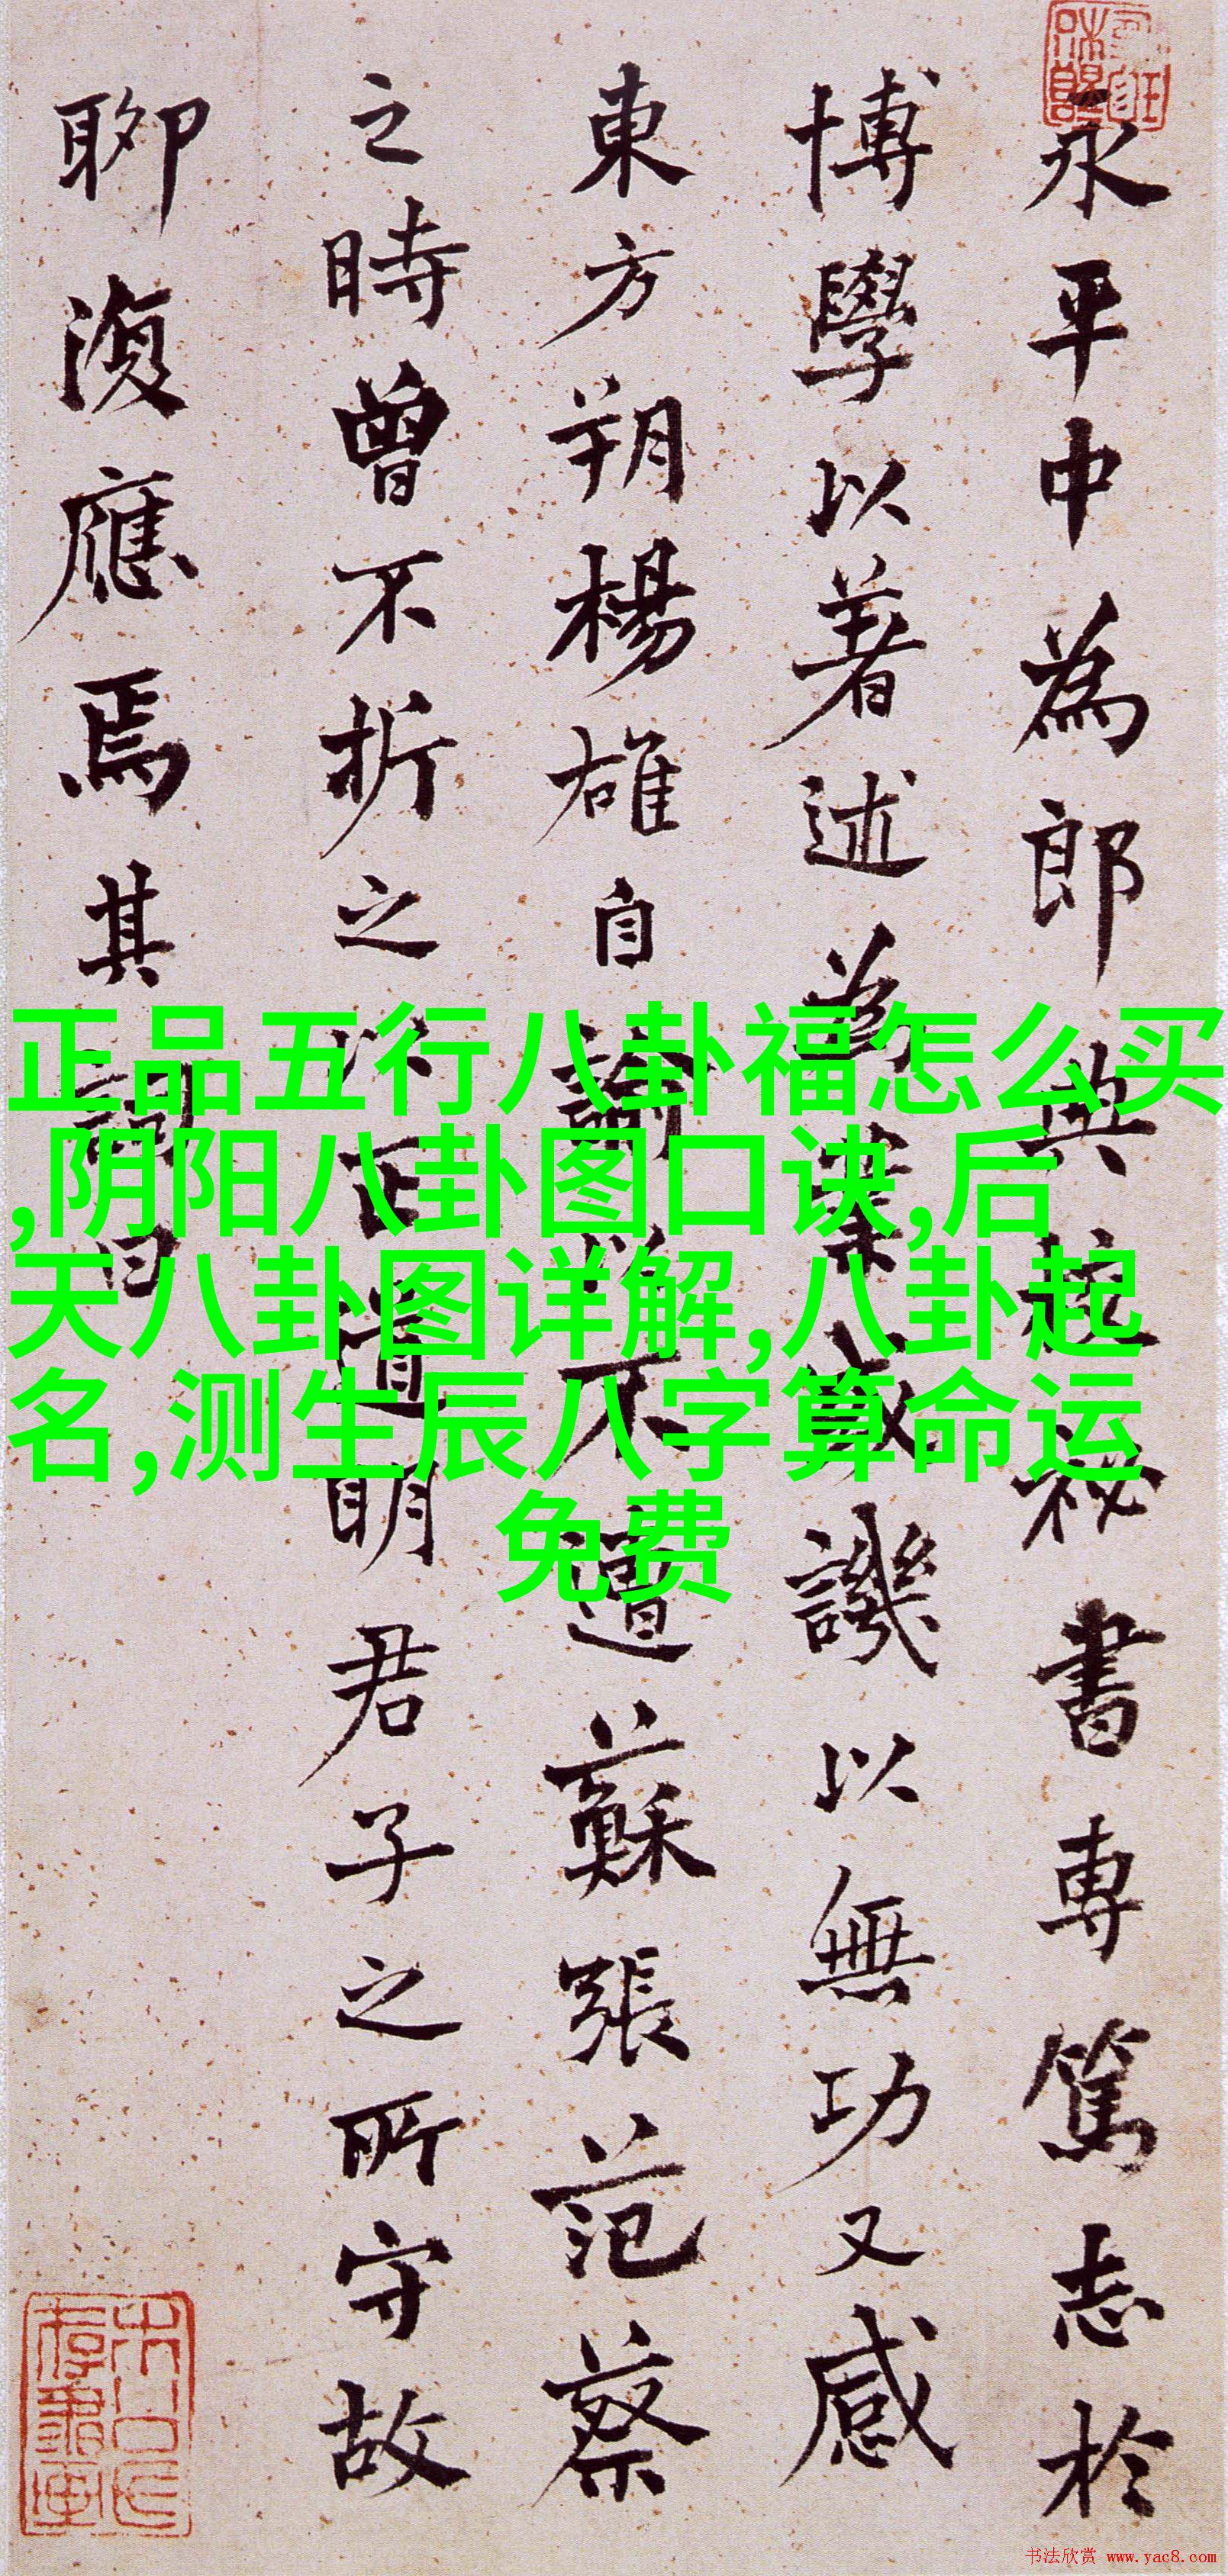 永平中為郎典校祕書專篤志於
博學以著述為業或譏以無功又感
東方朔楊雄自論以不遭蘇張范蔡
之時曾不折之以正道明君子之所守故
聊復應焉其詞曰
正品五行八卦福怎么买
,阴阳八卦图口诀,后
天八卦图详解,八卦起
名,测生辰八字算命运
免费
书法欣赏 www.yac8.com